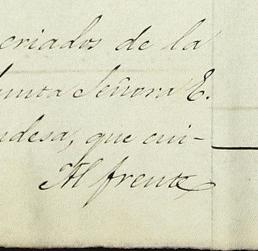 criados de la
Señora E.
que cui-
Al frente